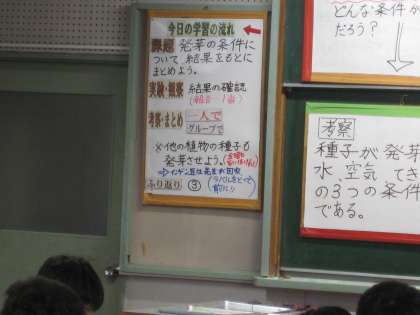 今日の学習の流れ
課題 発芽の条件に
ついて 結果をもとに
まとめよう。
実験・観察 結果の確認
考察・まとめ 一人で
グループで
※他の植物の種子も
発芽させよう。
ふり返り ③
どんな条件が
だろう?
考察
種子が発芽
水、空気、てき
の3つの条件
である。